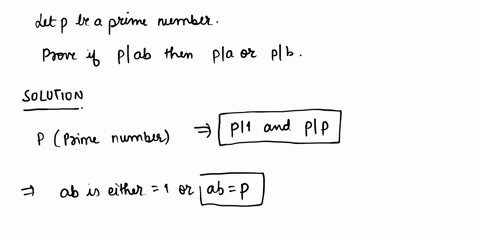 Let p be a prime number.
Prove if p|ab then p|a or p|b.
SOLUTION
P (Prime number) ⇒ p|1 and p|p
⇒ ab is either = 1 or ab = p